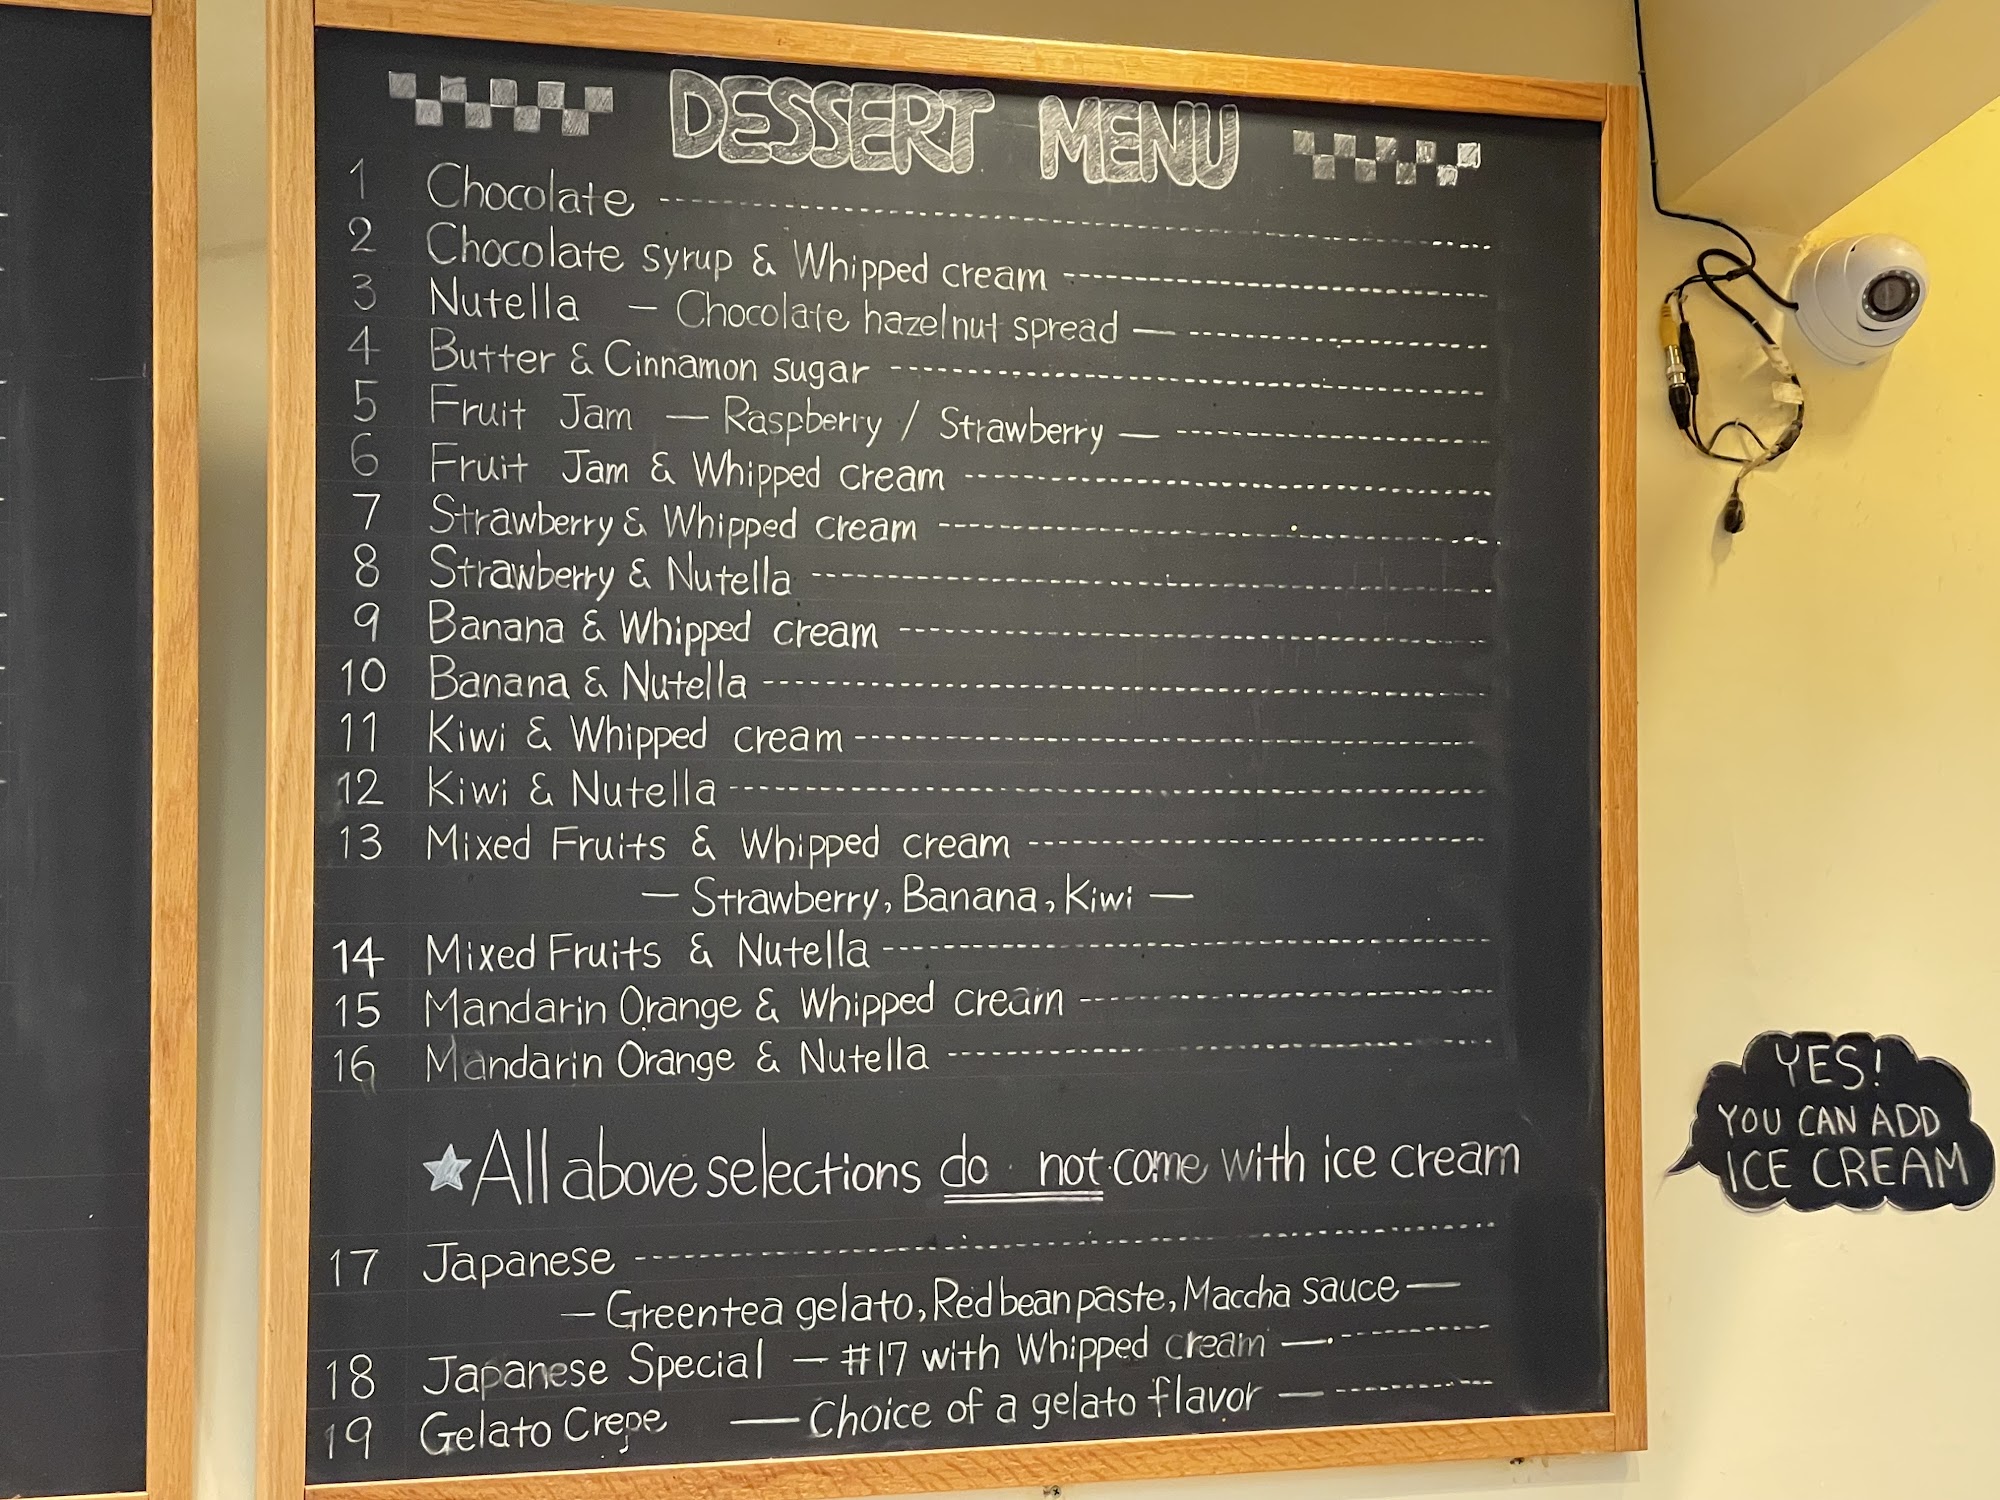 DESSERT MENU
1 Chocolate
2 Chocolate syrup & Whipped cream
3 Nutella — Chocolate hazelnut spread —
4 Butter & Cinnamon sugar
5 Fruit Jam — Raspberry / Strawberry —
6 Fruit Jam & Whipped cream
7 Strawberry & Whipped cream
8 Strawberry & Nutella
9 Banana & Whipped cream
10 Banana & Nutella
11 Kiwi & Whipped cream
12 Kiwi & Nutella
13 Mixed Fruits & Whipped cream
— Strawberry, Banana, Kiwi —
14 Mixed Fruits & Nutella
15 Mandarin Orange & Whipped cream
16 Mandarin Orange & Nutella
★ All above selections do not come with ice cream
17 Japanese
— Greentea gelato, Red bean paste, Maccha sauce —
18 Japanese Special — #17 with Whipped cream —
19 Gelato Crepe — Choice of a gelato flavor —
YES!
YOU CAN ADD
ICE CREAM